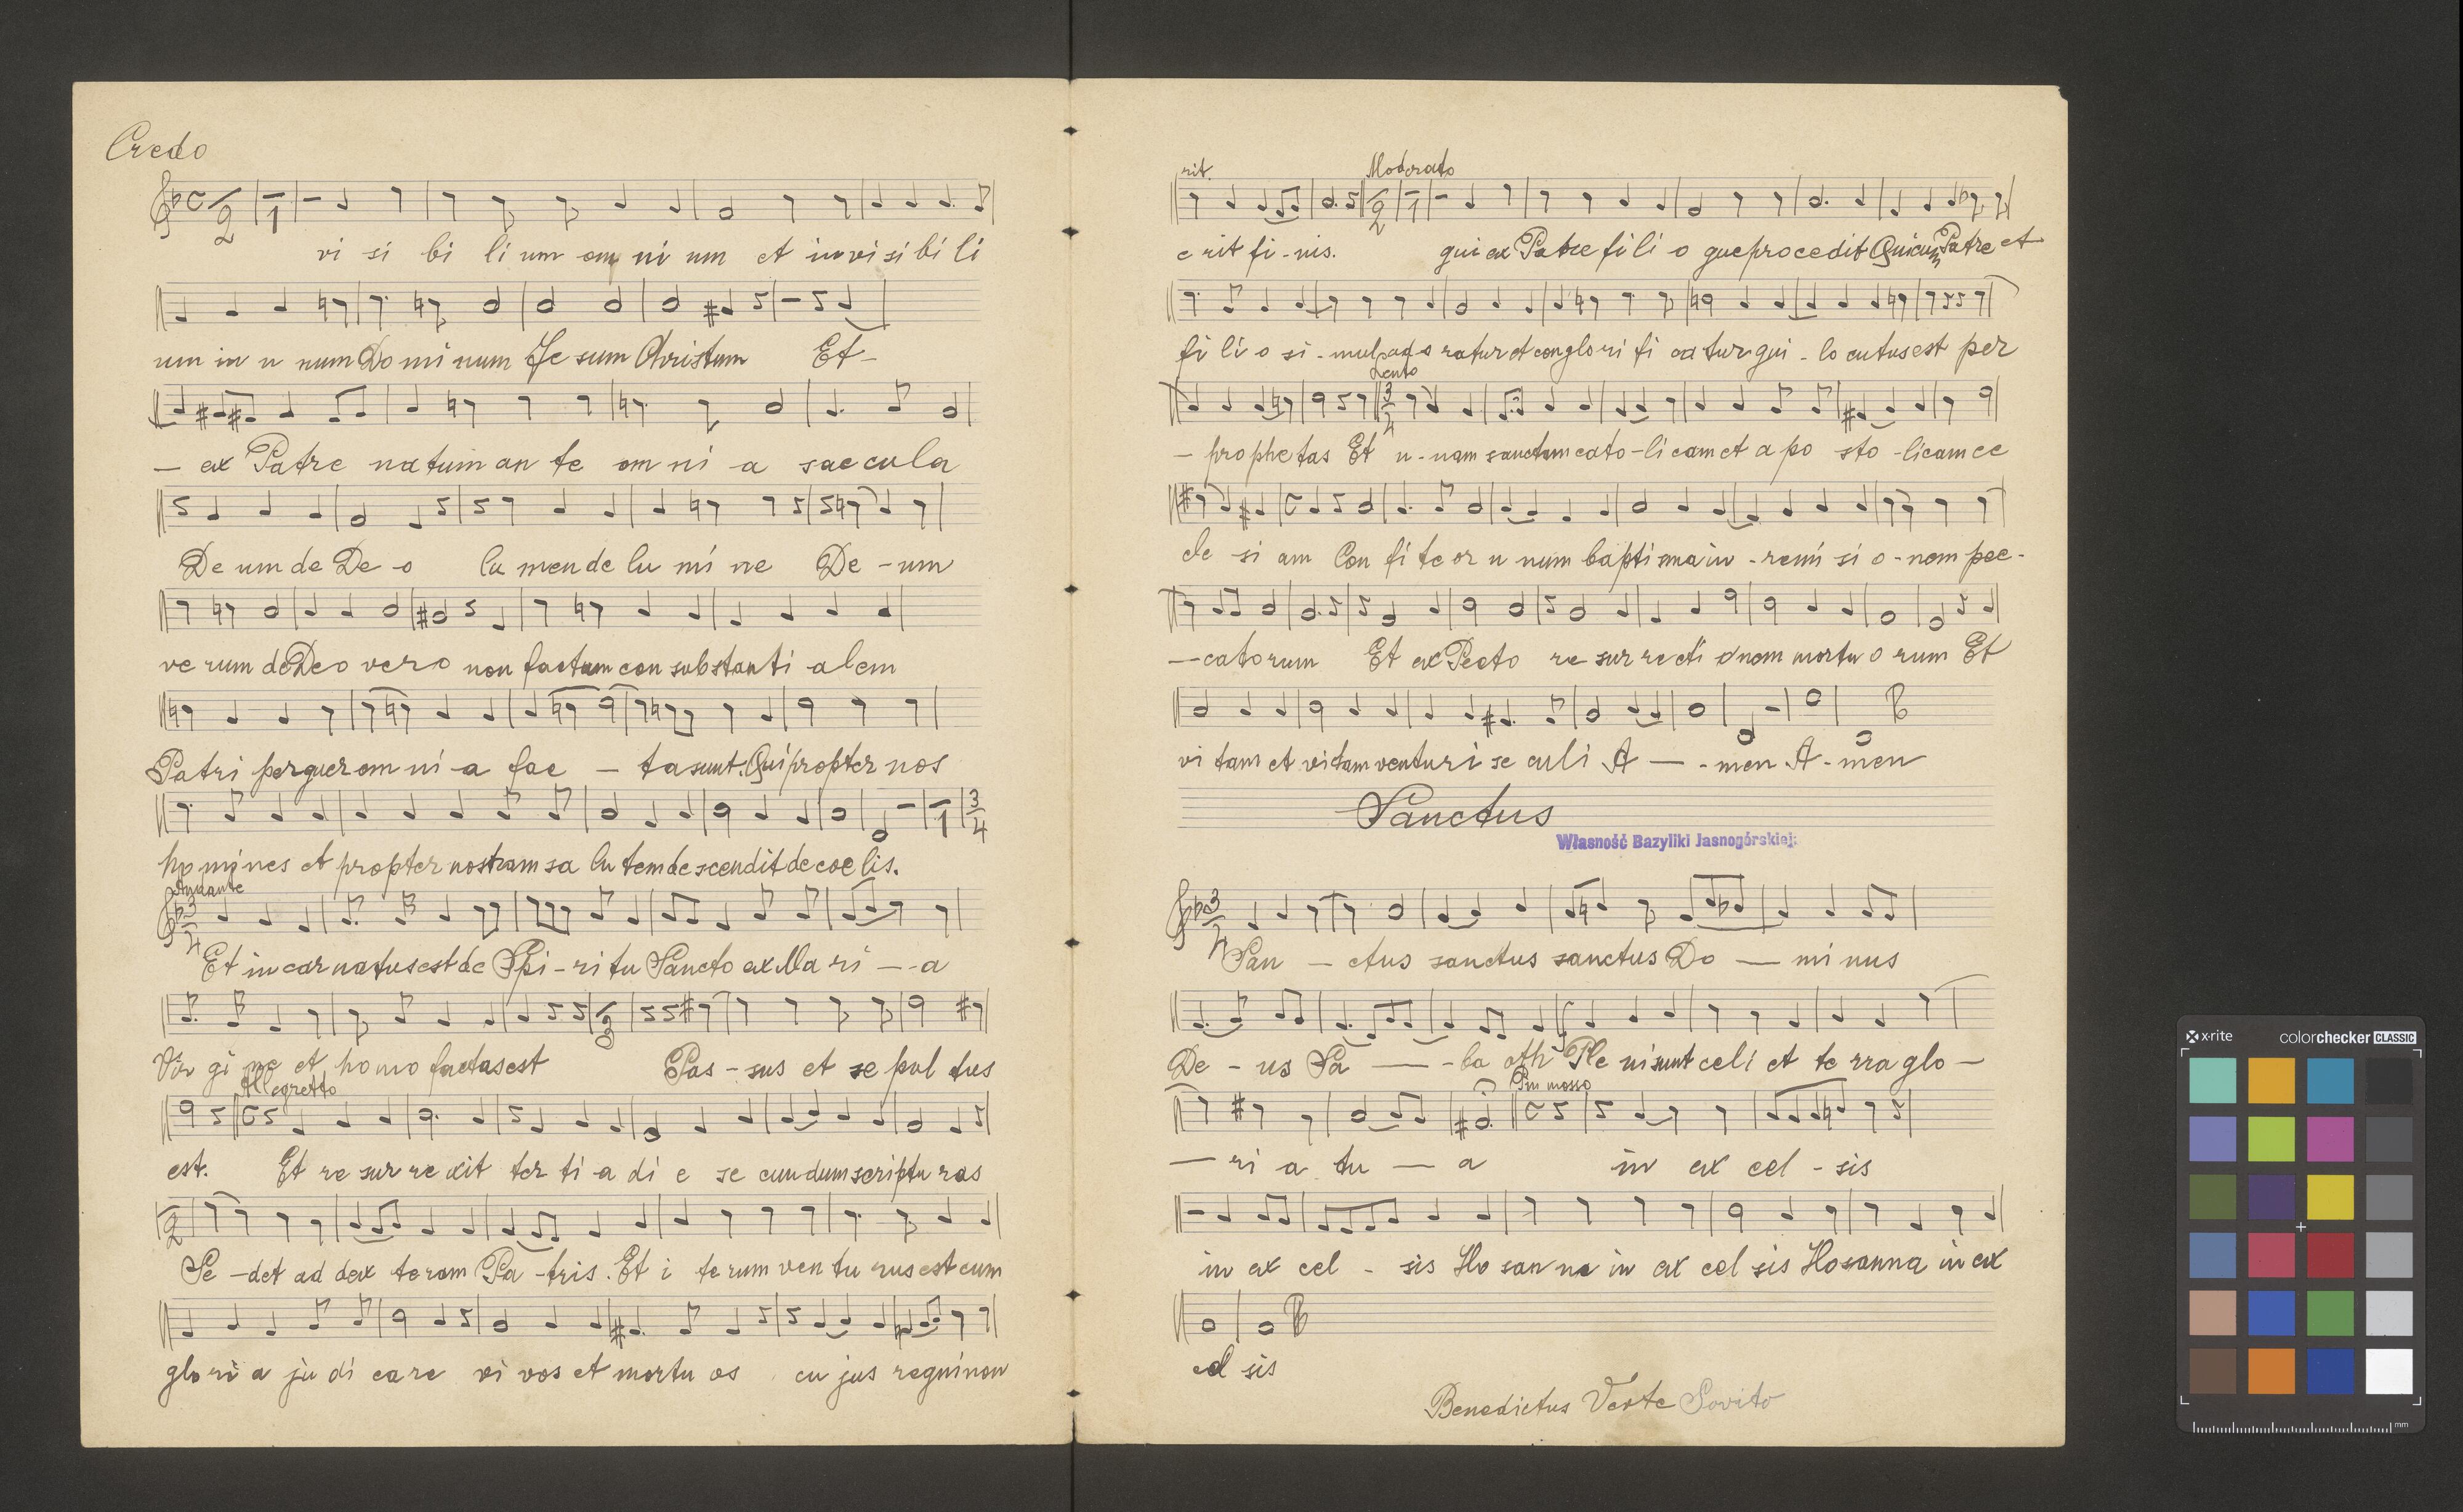 Credo
vi si bi li um om ni um et in vi si bi li
um in u num Do mi num Je sum Christum Et -
- ex Patre natum an te om ni a saecula
De um de De o lu men de lu mi ne De - um
ve rum de Deo vero non factum con substanti alem
Patri per quem om ni - a fac - ta sunt. Qui propter nos
ho mi nes et propter nostram sa lu tem de scendit de coe lis.
Andante
Et in car natus est de Spi - ri tu Sancto ex Ma ri - - a
Vir gi ne et homo factus est Pas - sus et se pul tus
Allegretto
est. Et re sur re xit ter ti - a di e se cundum scriptu ras
Se - det ad dex teram Pa - tris. Et i terum ven tu rus est cum
glo ri a ju di care vi vos et mortu os cu jus regni non
rit. Moderato
e rit fi - nis. qui ex Patre fi li o que procedit Qui cum Patre et
fi li o si - mul ad o ratur et conglori fi ca tur qui - lo cutus est per
Lento
- prophetas Et u - nam sanctam cato - li cam et a po sto - licam ec
cle si am Con fi te or u num baptisma in - remi si o - nem pec -
- catorum Et ex Pecto re sur recti onem mortu o rum Et
vi tam et vitam venturi se culi A - - men A - men
Sanctus
Własność Bazyliki Jasnogórskiej
San - ctus sanctus sanctus Do - mi nus
De - us Sa - - ba oth Ple ni sunt celi et te rra glo -
Piu mosso
- ri a tu - a in ex cel - sis
in ex cel - sis Ho san na in ex cel sis Hosanna in ex
cel sis
Benedictus Verte Sovito
x-rite colorchecker CLASSIC
mm